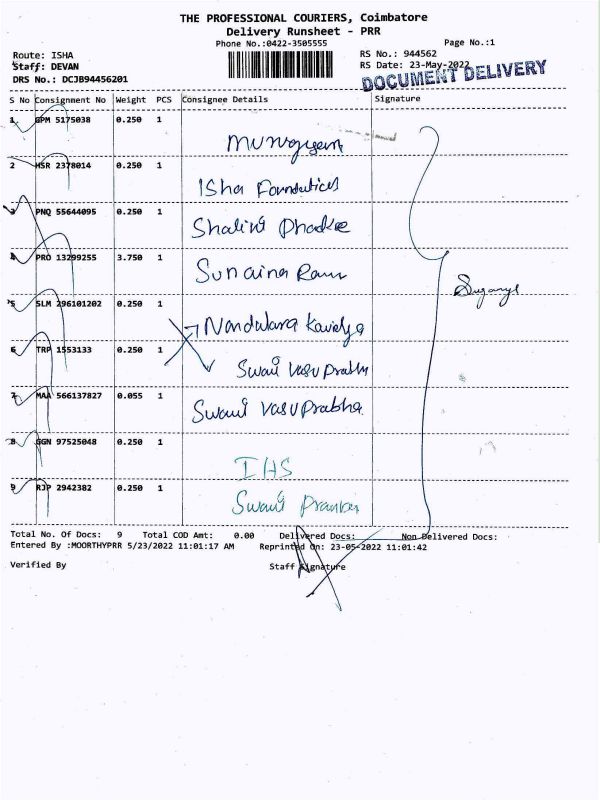 THE PROFESSIONAL COURIERS, Coimbatore
Delivery Runsheet - PRR
Phone No.:0422-3505555 Page No.:1
Route: ISHA RS No.: 944562
Staff: DEVAN RS Date: 23-May-2022
DRS No.: DCJB94456201 DOCUMENT DELIVERY
S No Consignment No Weight PCS Consignee Details Signature
1 GPM 5175038 0.250 1
Murugesan
2 HSR 2378014 0.250 1
Isha Foundation
3 PNQ 55644095 0.250 1
Shalini Phadke
4 PRO 13299255 3.750 1
Sunaina Ram
5 SLM 296101202 0.250 1
Nandulara Kavidya
6 TRP 1553133 0.250 1
Swami Vasu Prabhu
7 MAA 566137827 0.055 1
Swami Vasu Prabha
8 GGN 97525048 0.250 1
IHS
9 RJP 2942382 0.250 1
Swami
Total No. Of Docs: 9 Total COD Amt: 0.00 Delivered Docs: Non Delivered Docs:
Entered By :MOORTHYPRR 5/23/2022 11:01:17 AM Reprinted On: 23-05-2022 11:01:42
Verified By Staff Signature